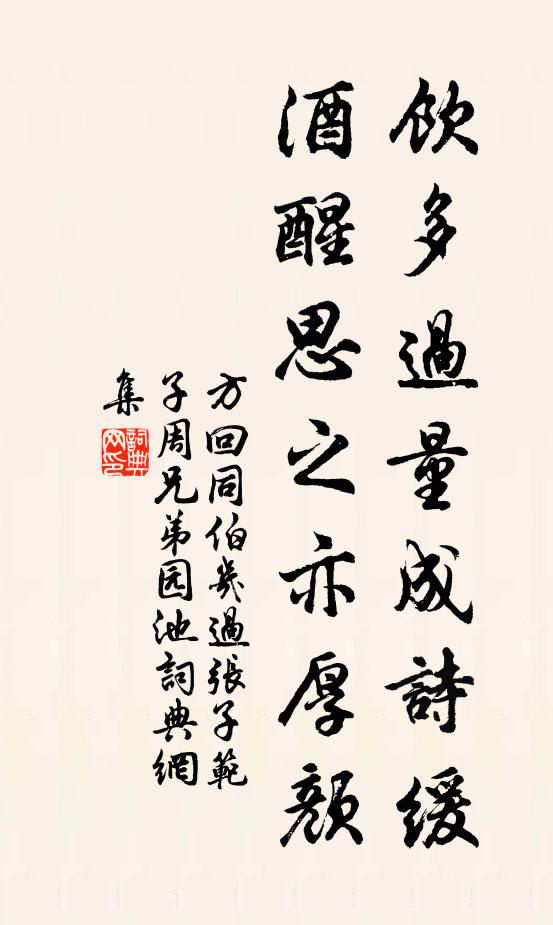 飲多過量成詩緩
酒醒思之亦厚顏
方回同伯幾過張子範
子周兄弟园池詞典網
集
詞典
网印